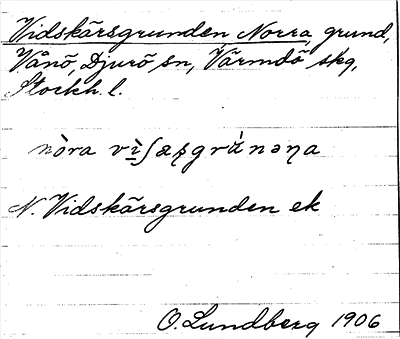 Vidskärsgrunden Norra, grund,
Vånö, Djurö sn, Värmdö skg,
Stockh. l.
nòra
N. Vidskärsgrunden ek
O. Lundberg 1906